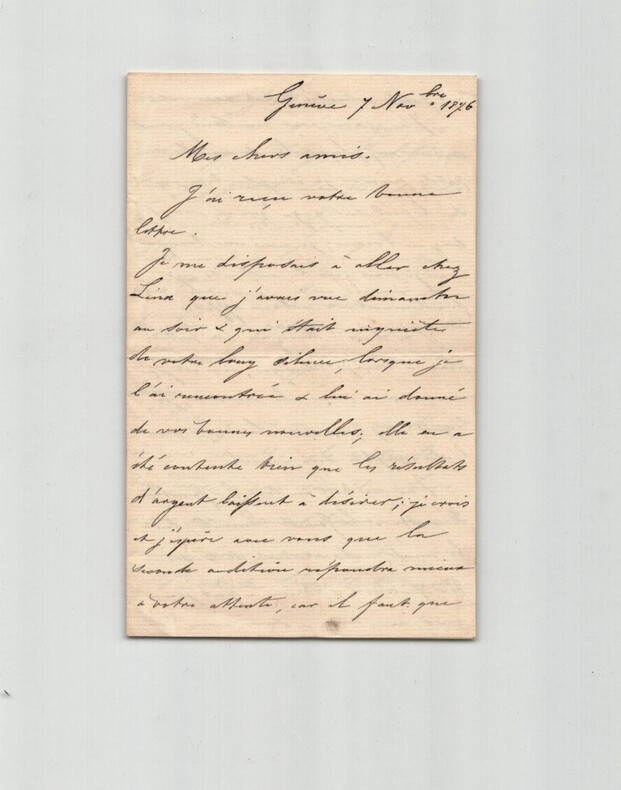 Genève 7 Nov.bre 1876
Mes chers amis.
J'ai reçu votre bonne
lettre.
Je me disposais à aller chez
Lina que j'avais vue dimanche
au soir & qui était inquiète
de votre long silence, lorsque je
l'ai rencontrée & lui ai donné
de vos bonnes nouvelles; elle en a
été contente bien que les résultats
d'argent laissent à désirer; je crois
et j'espère avec vous que la
seconde audition répondra mieux
à votre attente, car il faut que